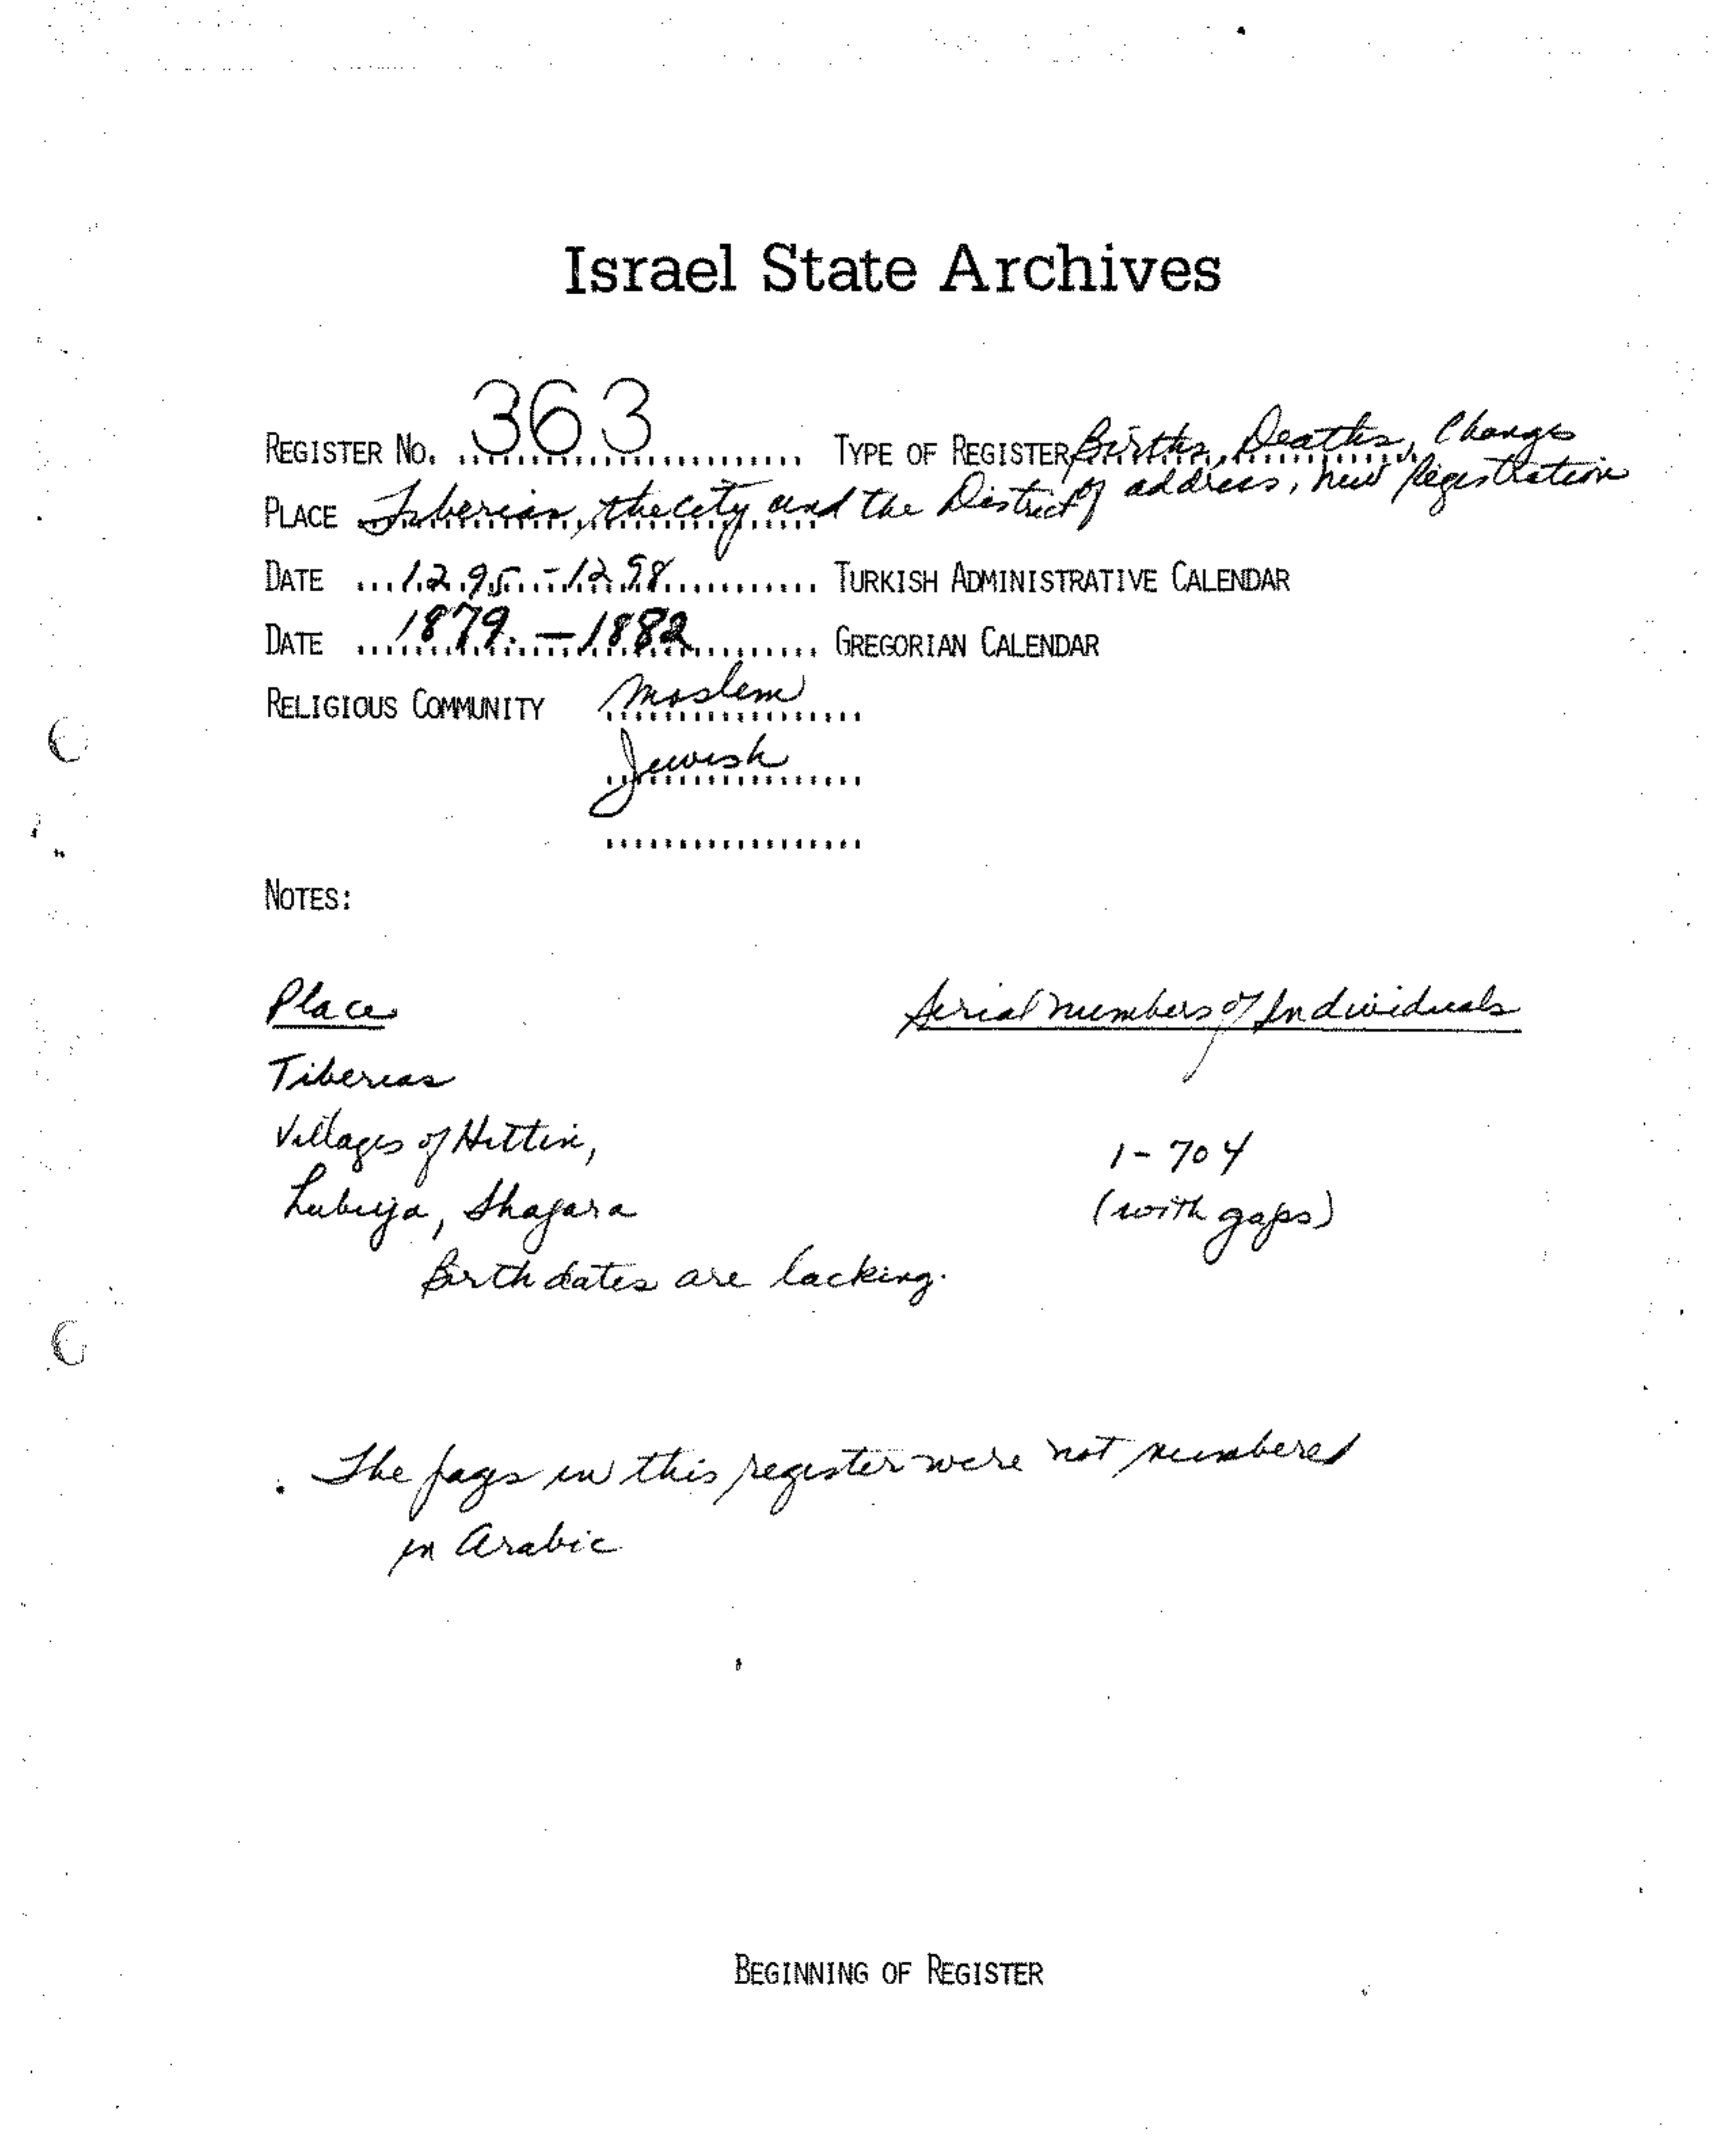 Israel State Archives
REGISTER NO. 363 TYPE OF REGISTER Births, Deaths, Change
of address, new Registration
PLACE Tiberias, the city and the District
DATE 1295 - 1298 TURKISH ADMINISTRATIVE CALENDAR
DATE 1879. - 1882 GREGORIAN CALENDAR
RELIGIOUS COMMUNITY Moslem
Jewish
NOTES:
Place Serial numbers of Individuals
Tiberias
Villages of Hittin, 1 - 704
Lubiya, Shagara (with gaps)
Birth dates are lacking.
. The pages in this register were not numbered
in Arabic
BEGINNING OF REGISTER